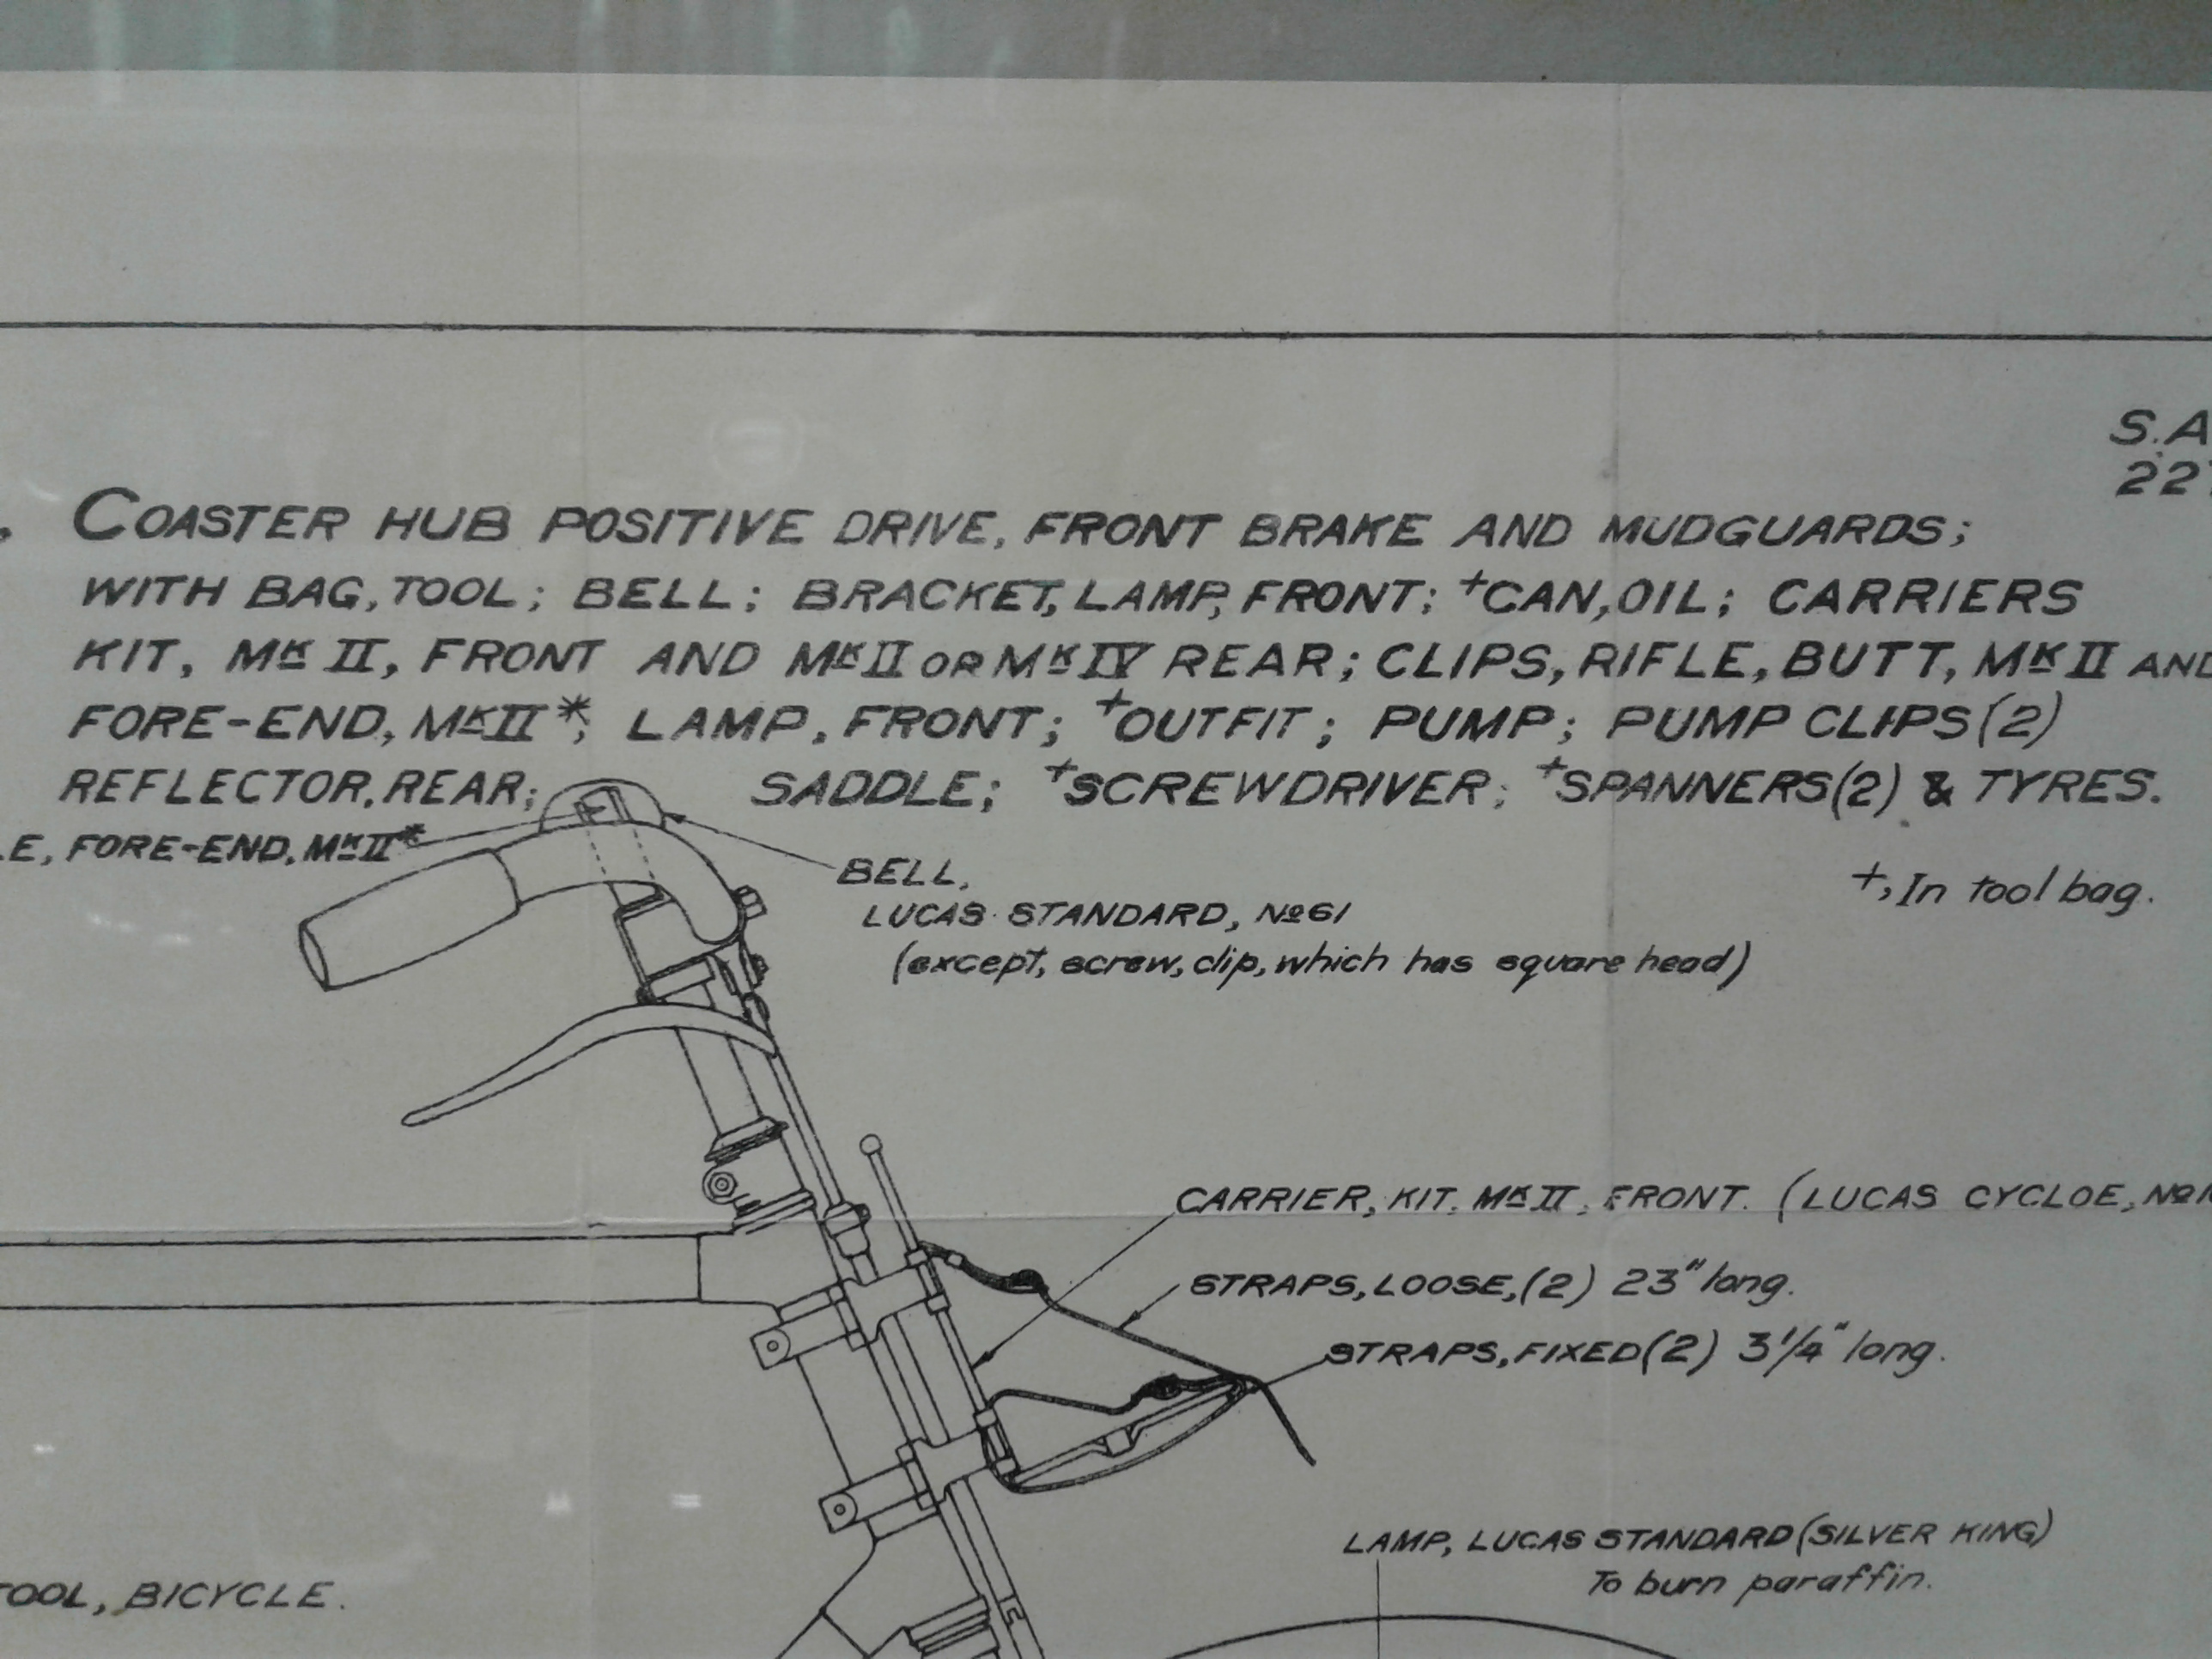 S.A
22
COASTER HUB POSITIVE DRIVE, FRONT BRAKE AND MUDGUARDS;
WITH BAG, TOOL; BELL; BRACKET, LAMP, FRONT; +CAN, OIL; CARRIERS
KIT, MK II, FRONT AND MK II OR MK IV REAR; CLIPS, RIFLE, BUTT, MK II AND
FORE-END, MK II*; LAMP, FRONT; +OUTFIT; PUMP; PUMP CLIPS (2)
REFLECTOR, REAR; SADDLE; +SCREWDRIVER; +SPANNERS (2) & TYRES.
E, FORE-END, MK II*
+, In tool bag.
BELL,
LUCAS STANDARD, No 61
(except, screw, clip, which has square head)
CARRIER, KIT, MK II, FRONT. (LUCAS CYCLOE, No
STRAPS, LOOSE, (2) 23" long.
STRAPS, FIXED (2) 3 1/4" long.
LAMP, LUCAS STANDARD (SILVER KING)
To burn paraffin.
TOOL, BICYCLE.